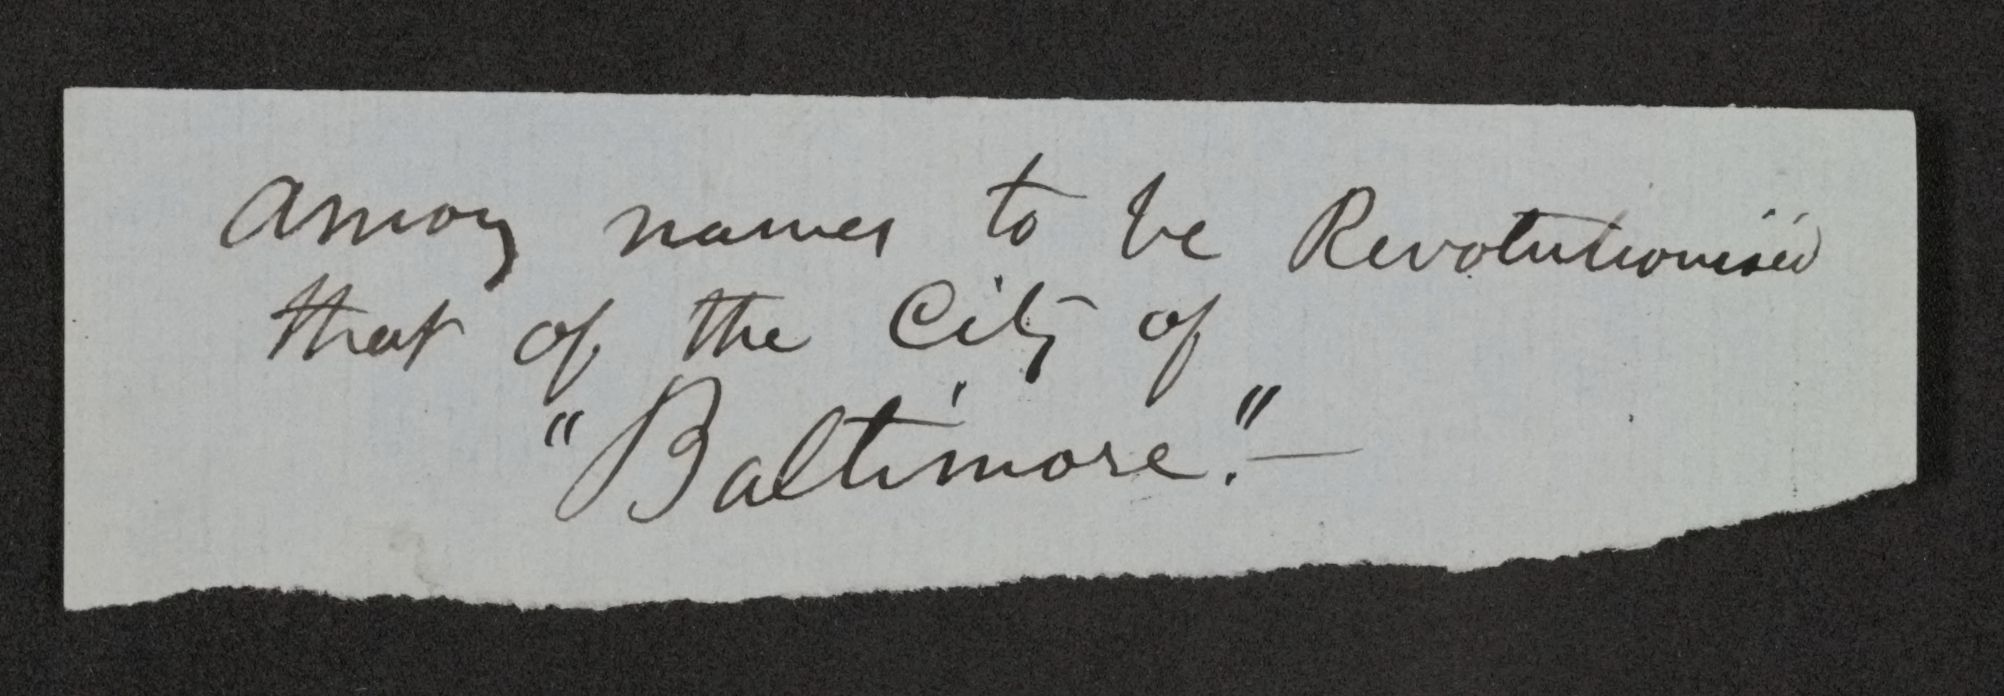 Among names to be Revolutionised
that of the City of
"Baltimore." —